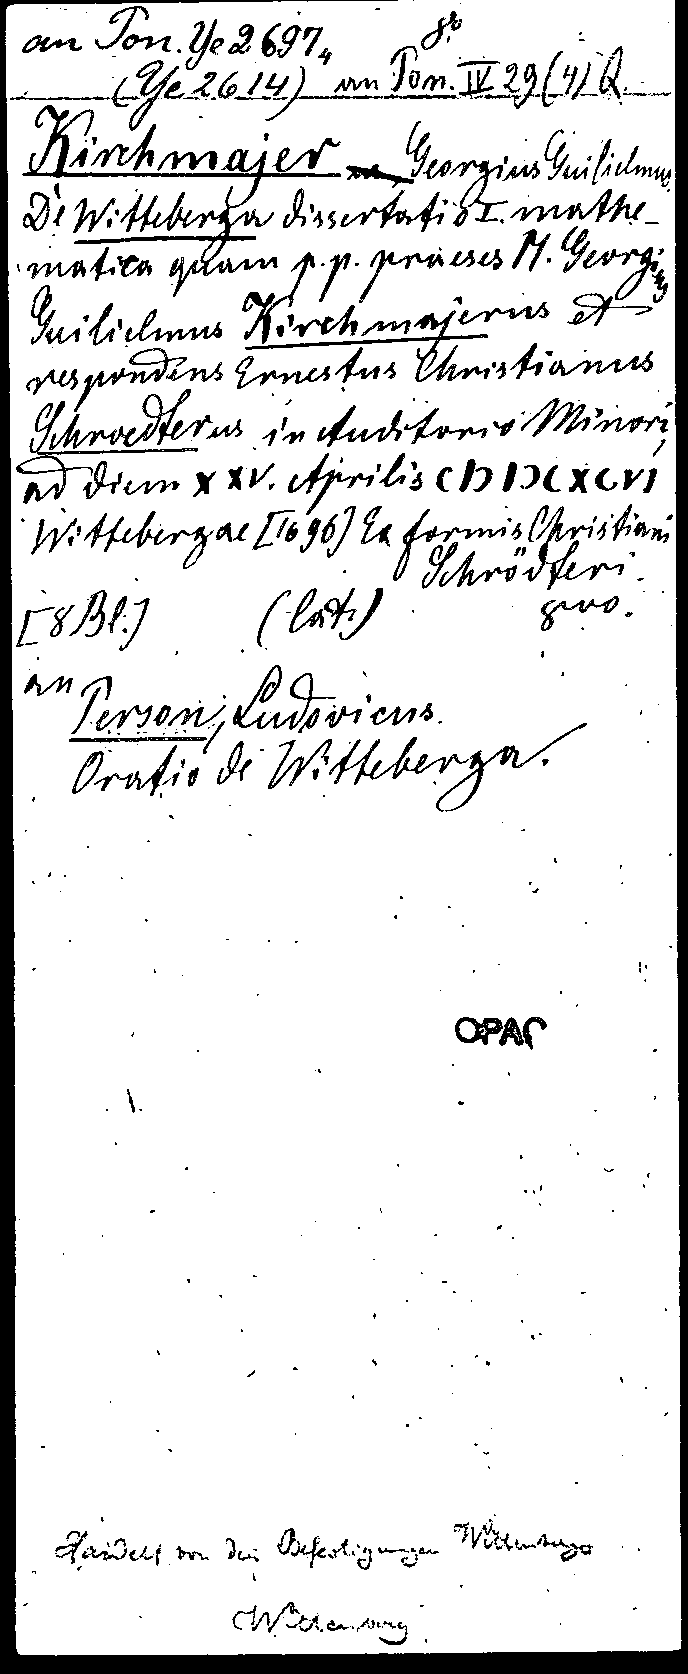 an Pon. Ye 2697, 8°
(Ye 2614) an Pon. IV 29 (4) Q.
Kirchmajer Georgius Guilielmus
De Witteberga dissertatio I. mathe-
matica quam p. p. praeses M. Georgius
Guilielmus Kirchmajerus et
respondens Ernestus Christianus
Schroedterus in Auditorio Minori
ad diem XXV. Aprilis CIƆ IƆC XCVI
Wittebergae [1696] Ex formis Christiani
Schrödteri.
[8 Bl.] (lat.) 8vo.
an
Person, Ludovicus.
Oratio de Witteberga.
OPAC
Handelt von den Befestigungen Wittenbergs
Wittenberg